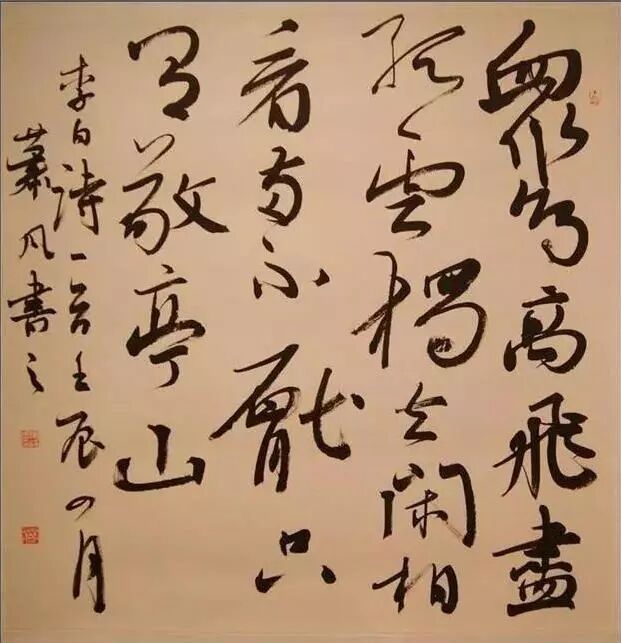 衆鳥高飛盡
孤雲獨去閑相
看兩不厭只
有敬亭山
李白詩一首壬辰四月
蕭風書之